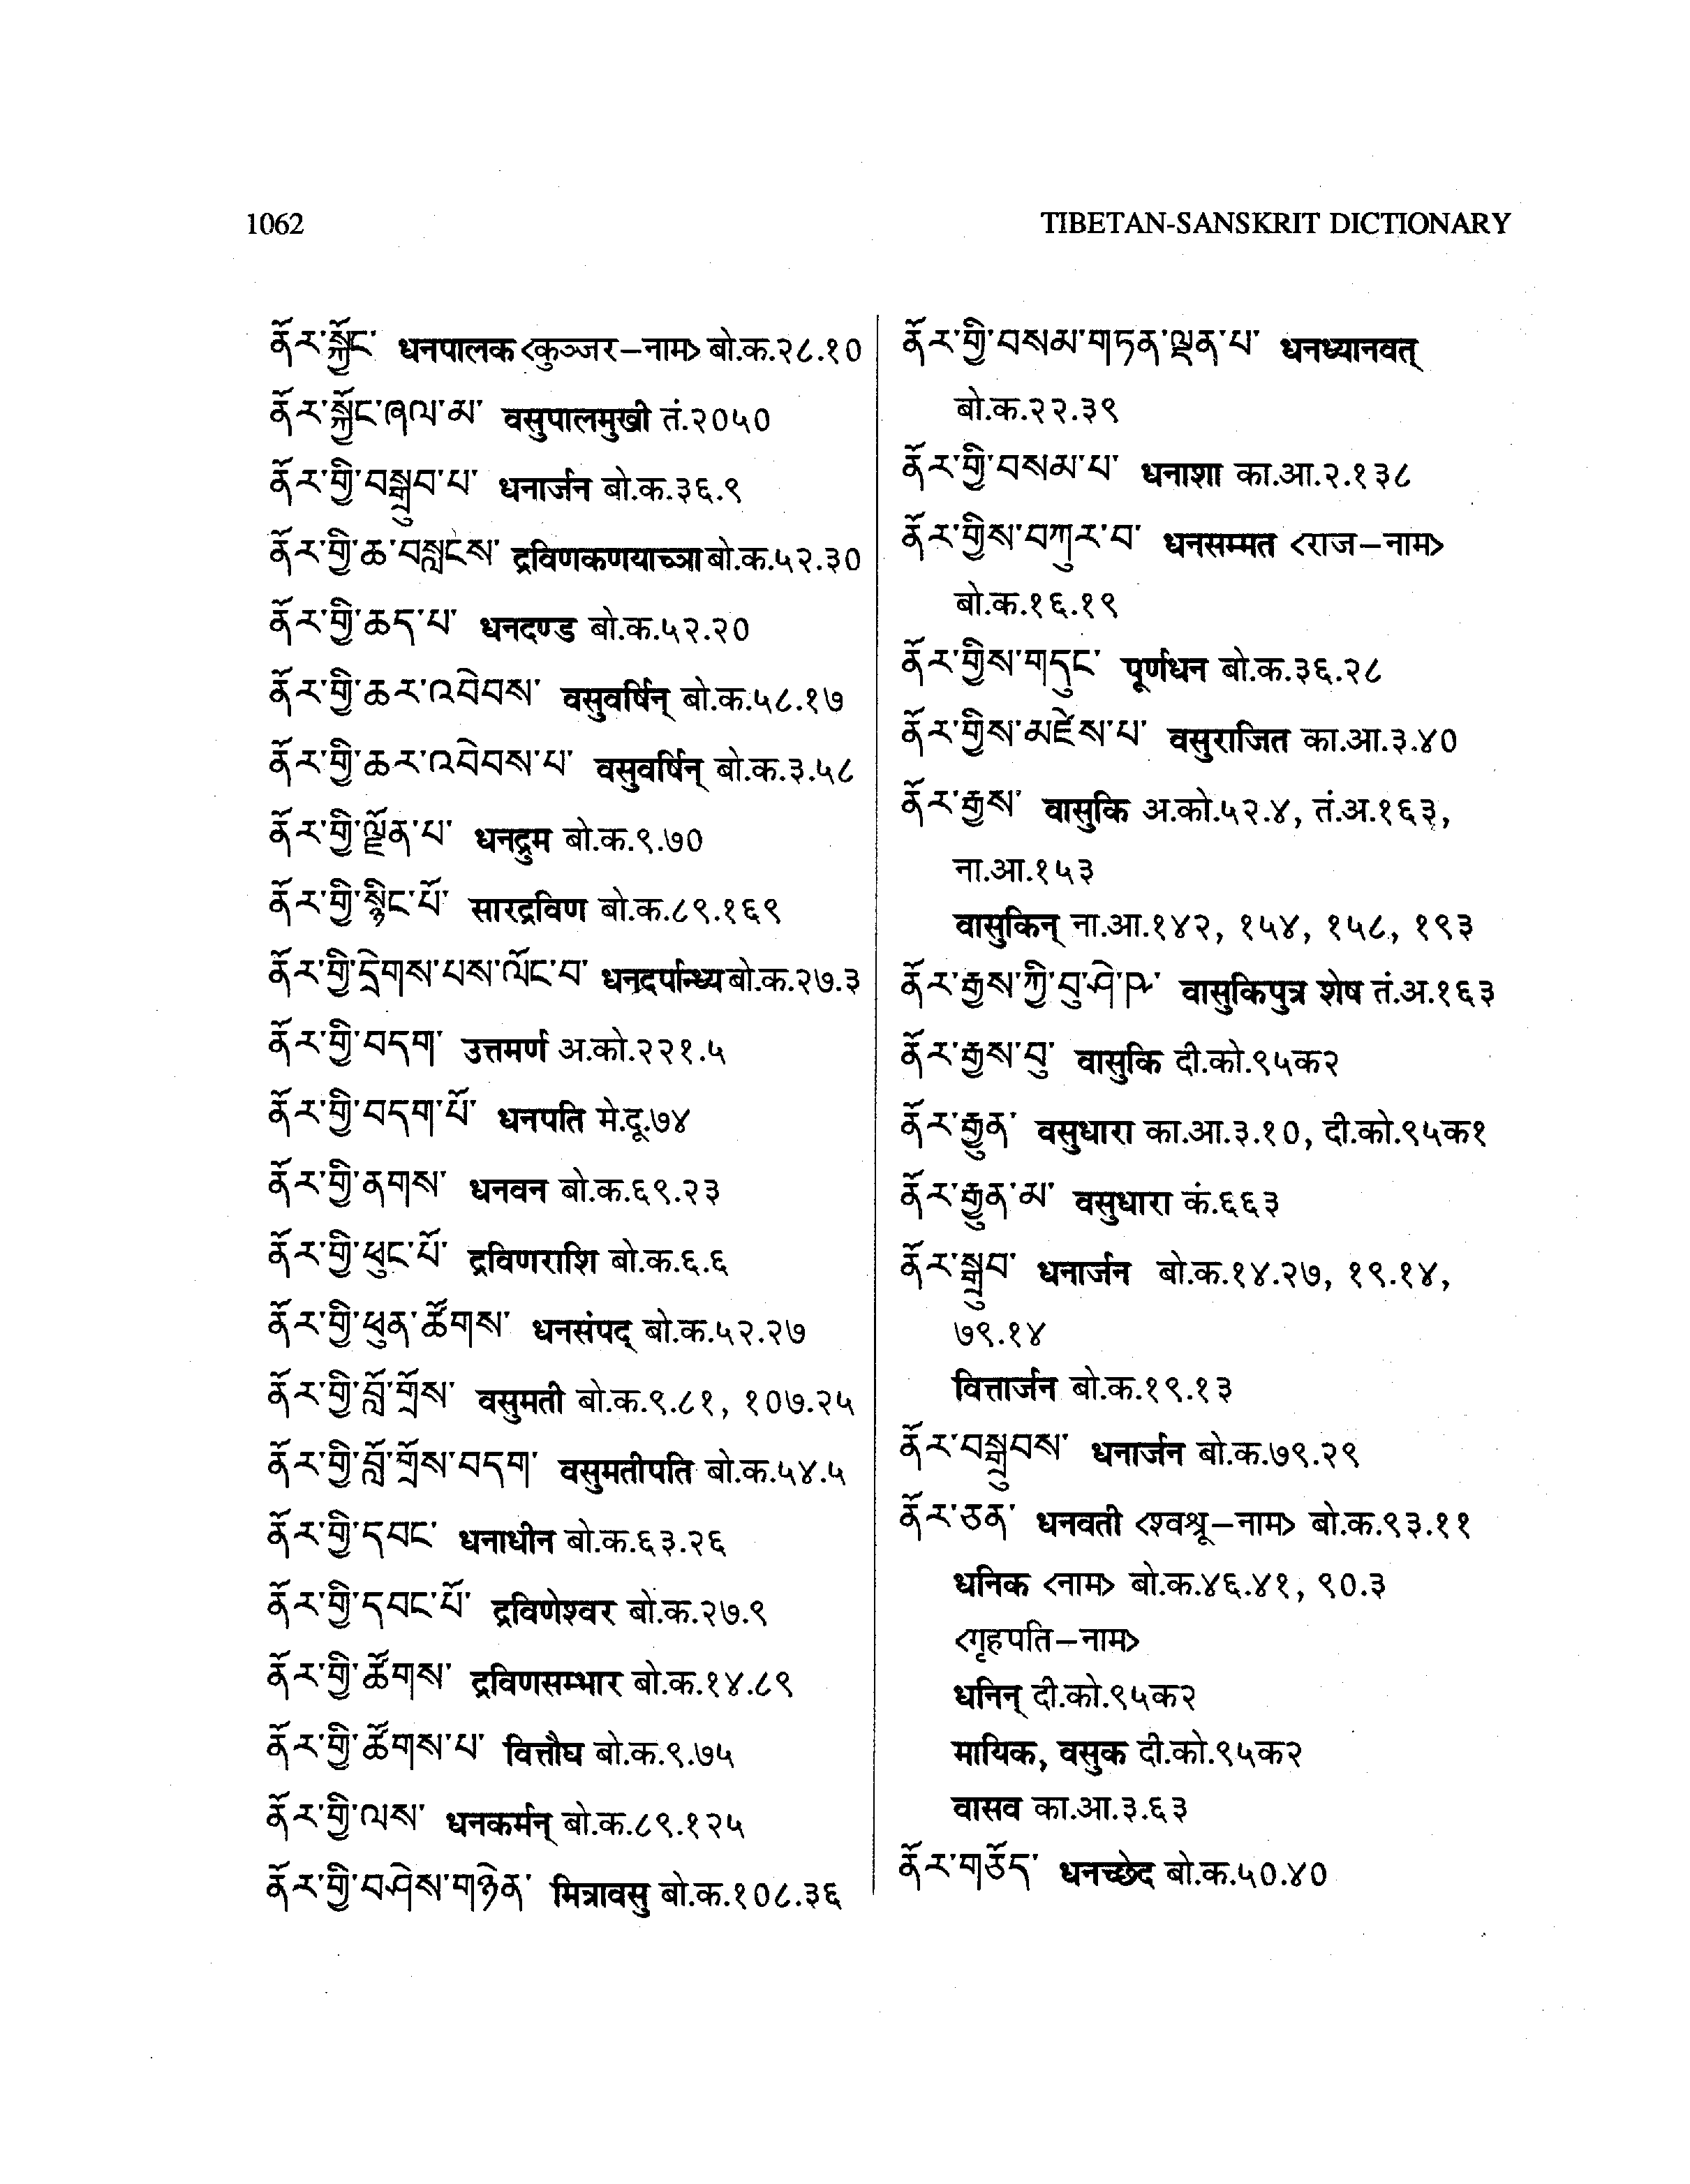 1062
TIBETAN-SANSKRIT DICTIONARY
ནོར་སྐྱོང་ धनपालक <कुञ्जर–नाम> बो.क.२८.१०
ནོར་སྐྱོང་ཞལ་མ་ वसुपालमुखी तं.२०५०
ནོར་གྱི་བསྒྲུབ་པ་ धनार्जन बो.क.३६.९
ནོར་གྱི་ཆ་བསླངས་ द्रविणकणयाच्ञा बो.क.५२.३०
ནོར་གྱི་ཆད་པ་ धनदण्ड बो.क.५२.२०
ནོར་གྱི་ཆར་འབེབས་ वसुवर्षिन् बो.क.५८.१७
ནོར་གྱི་ཆར་འབེབས་པ་ वसुवर्षिन् बो.क.३.५८
ནོར་གྱི་ལྗོན་པ་ धनद्रुम बो.क.९.७०
ནོར་གྱི་སྙིང་པོ་ सारद्रविण बो.क.८९.१६९
ནོར་གྱི་དྲེགས་པས་ལོང་བ་ धनदर्पान्ध्य बो.क.२७.३
ནོར་གྱི་བདག་ उत्तमर्ण अ.को.२२१.५
ནོར་གྱི་བདག་པོ་ धनपति मे.दू.७४
ནོར་གྱི་ནགས་ धनवन बो.क.६९.२३
ནོར་གྱི་ཕུང་པོ་ द्रविणराशि बो.क.६.६
ནོར་གྱི་ཕུན་ཚོགས་ धनसंपद् बो.क.५२.२७
ནོར་གྱི་བློ་གྲོས་ वसुमती बो.क.९.८१, १०७.२५
ནོར་གྱི་བློ་གྲོས་བདག་ वसुमतीपति बो.क.५४.५
ནོར་གྱི་དབང་ धनाधीन बो.क.६३.२६
ནོར་གྱི་དབང་པོ་ द्रविणेश्वर बो.क.२७.९
ནོར་གྱི་ཚོགས་ द्रविणसम्भार बो.क.१४.८९
ནོར་གྱི་ཚོགས་པ་ वित्तौघ बो.क.९.७५
ནོར་གྱི་ལས་ धनकर्मन् बो.क.८९.१२५
ནོར་གྱི་བཤེས་གཉེན་ मित्रावसु बो.क.१०८.३६
ནོར་གྱི་བསམ་གཏན་ལྡན་པ་ धनध्यानवत्
बो.क.२२.३९
ནོར་གྱི་བསམ་པ་ धनाशा का.आ.२.१३८
ནོར་གྱིས་བཀུར་བ་ धनसम्मत <राज–नाम>
बो.क.१६.१९
ནོར་གྱིས་གདུང་ पूर्णधन बो.क.३६.२८
ནོར་གྱིས་མཛེས་པ་ वसुराजित का.आ.३.४०
ནོར་རྒྱས་ वासुकि अ.को.५२.४, तं.अ.१६३,
ना.आ.१५३
वासुकिन् ना.आ.१४२, १५४, १५८, १९३
ནོར་རྒྱས་ཀྱི་བུ་ཤེ་ཥ་ वासुकिपुत्र शेष तं.अ.१६३
ནོར་རྒྱས་བུ་ वासुकि दी.को.९५क२
ནོར་རྒྱུན་ वसुधारा का.आ.३.१०, दी.को.९५क१
ནོར་རྒྱུན་མ་ वसुधारा कं.६६३
ནོར་སྒྲུབ་ धनार्जन बो.क.१४.२७, १९.१४,
७९.१४
वित्तार्जन बो.क.१९.१३
ནོར་བསྒྲུབས་ धनार्जन बो.क.७९.२९
ནོར་ཅན་ धनवती <श्वश्रू–नाम> बो.क.९३.११
धनिक <नाम> बो.क.४६.४१, ९०.३
<गृहपति–नाम>
धनिन् दी.को.९५क२
मायिक, वसुक दी.को.९५क२
वासव का.आ.३.६३
ནོར་གཅོད་ धनच्छेद बो.क.५०.४०